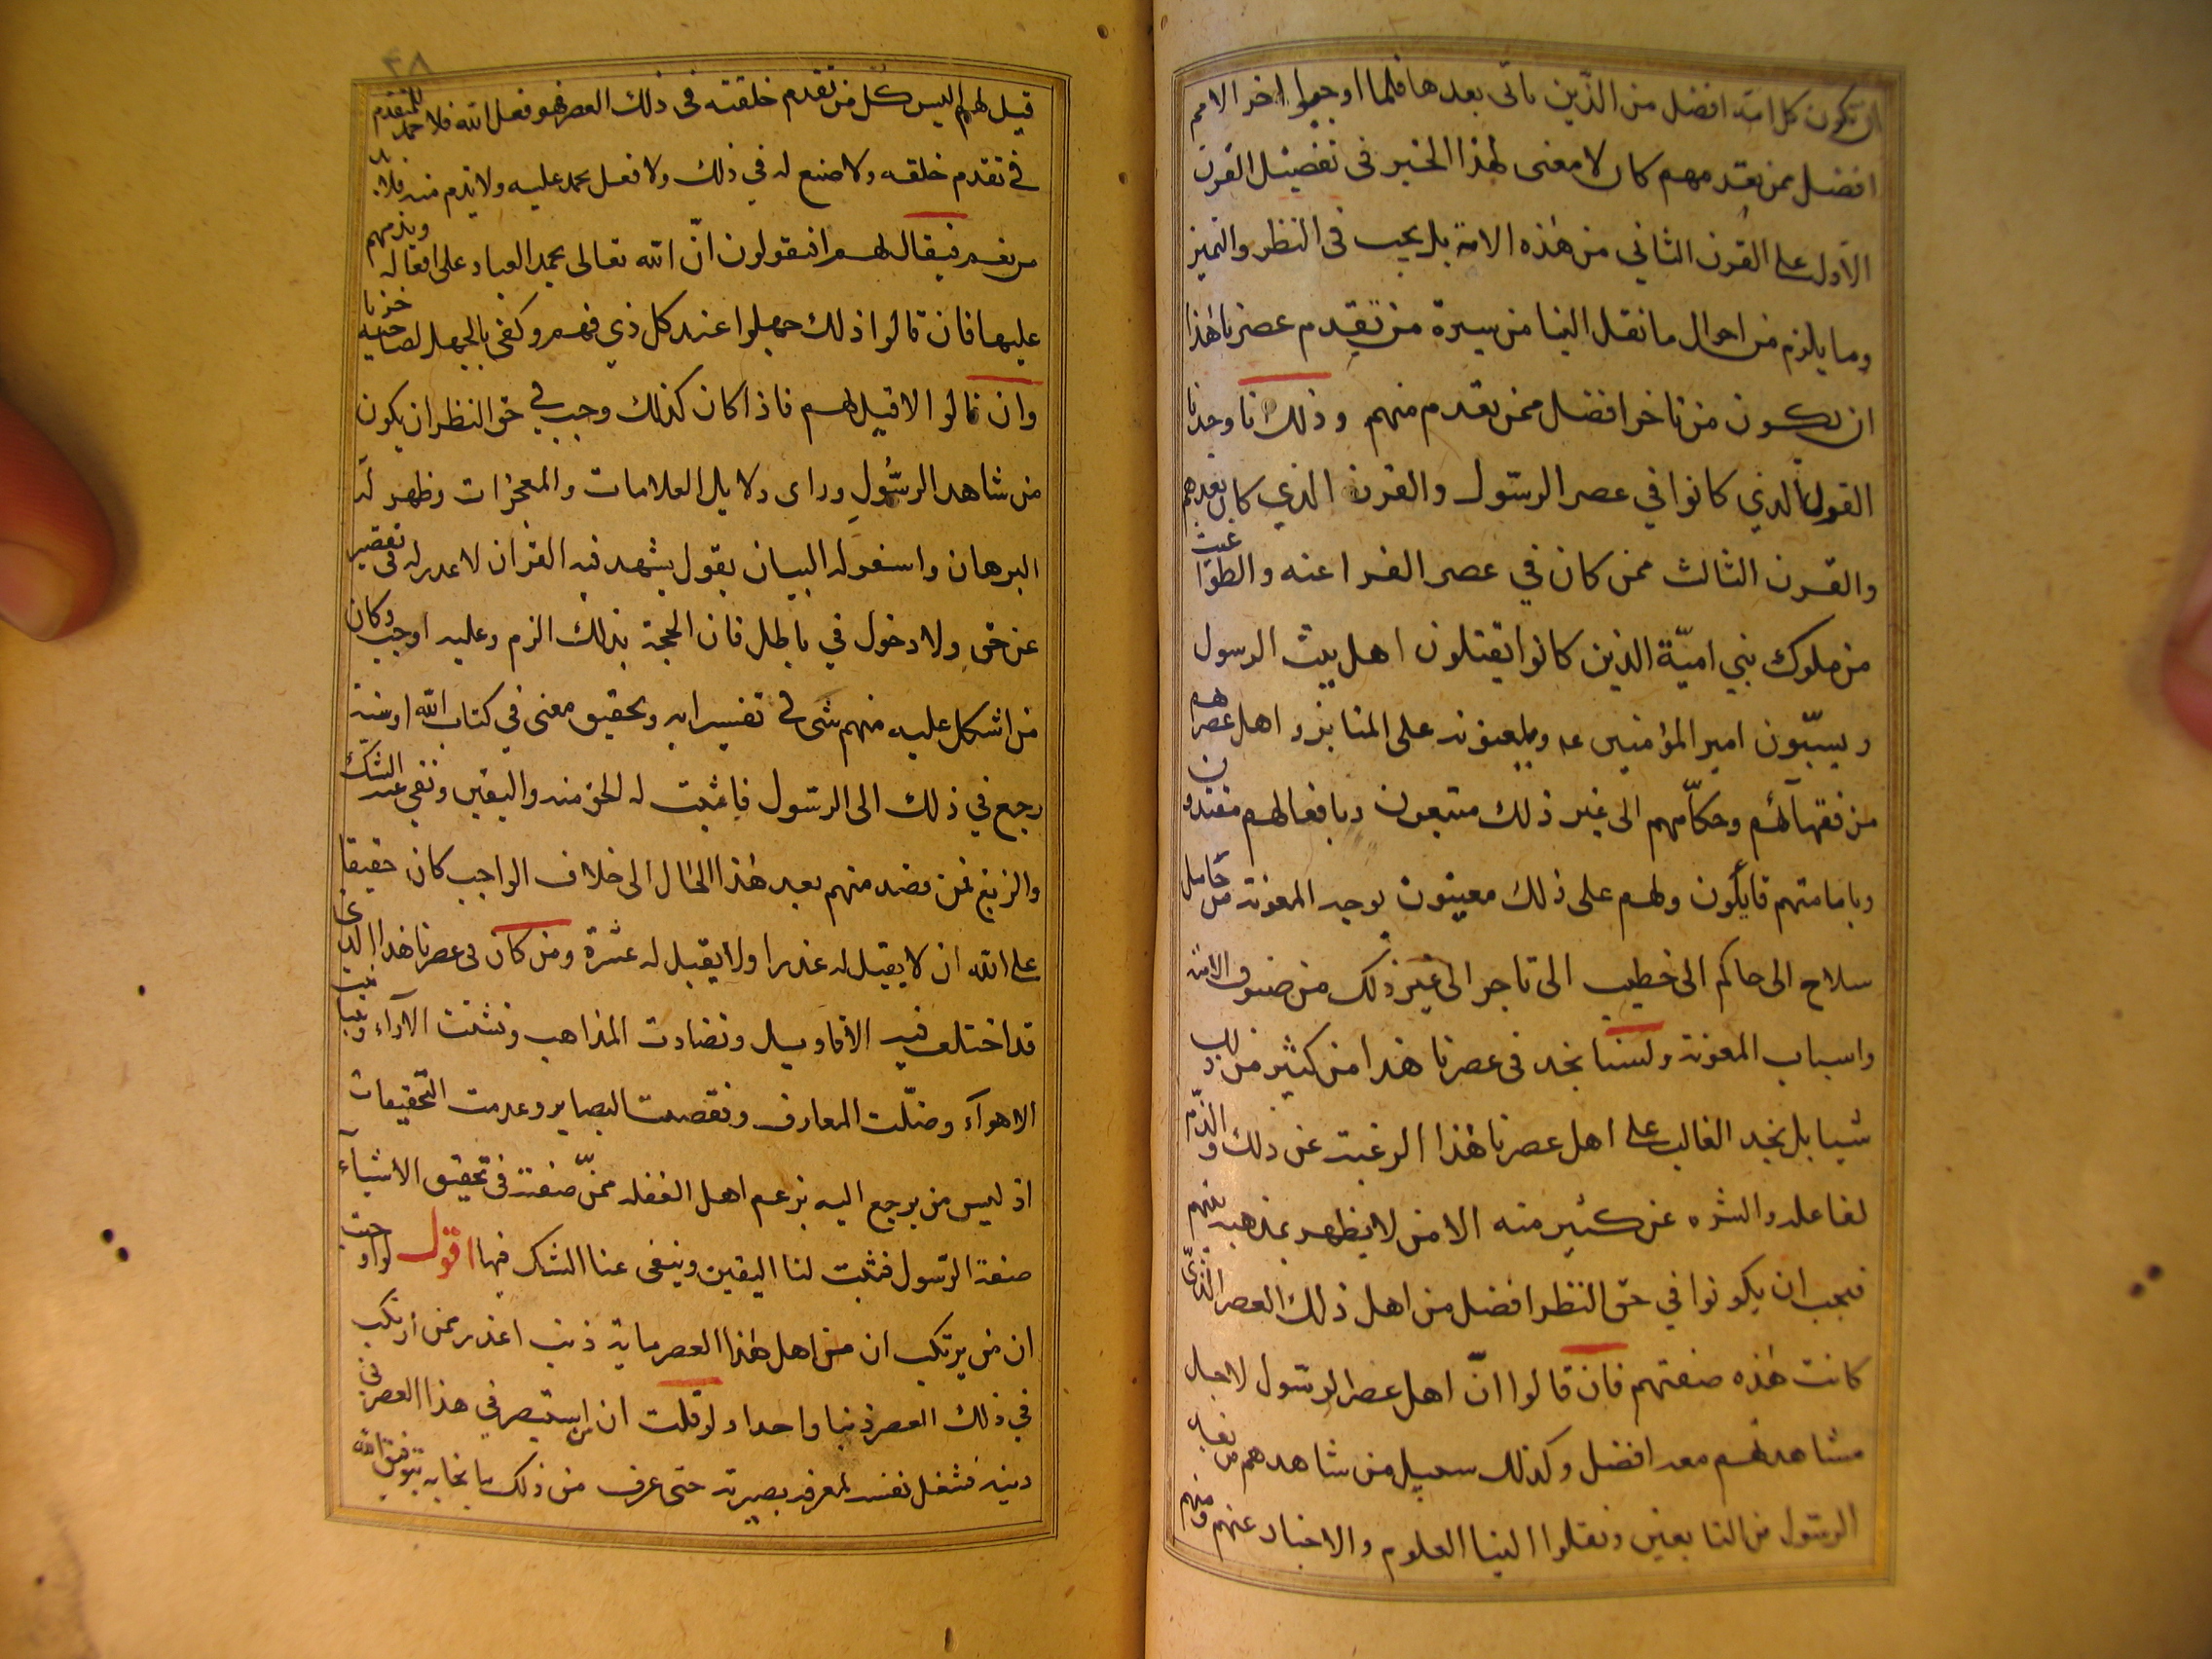 ان يكون كل امة افضل من الذين ياتى بعدها فلما اوجبوا اخر الامم
افضل ممن يقدمهم كان لا معنى لهذا الخبر فى تفضيل القرن
الاول على القرن الثاني من هذه الامة بل يجب فى النظر والتميز
وما يلزم من احوال ما نقل الينا من سيرة من تقدم عصرنا هذا
ان يكون من تاخر افضل ممن تقدم منهم وذلك انا وجدنا
القرن الذي كانوا في عصر الرسول والقرن الذي كان بعدهم
والقرن الثالث ممن كان في عصر الفراعنه والطواغيت
من ملوك بني اميّة الذين كانوا يقتلون اهل بيت الرسول
ويسبّون امير المؤمنين عه ويلعنونه على المنابر واهل عصرهم
من فقهآئهم وحكّامهم الى غير ذلك متبعون وبافعالهم مقتدون
وبامامتهم قايلون ولهم على ذلك معينون بوجه المعونة من حامل
سلاح الى حاكم الى خطيب الى تاجر الى غير ذلك من صنوف الامة
واسباب المعونة ولسنا نجد فى عصرنا هذا من كثير من ذلك
شيا بل نجد الغالب على اهل عصرنا هذا الرغبت عن ذلك والذّم
لفاعله والنزه عن كثير منه الا من لا يظهر بمذهبه منهم
فيجب ان يكونوا في حق النظر افضل من اهل ذلك العصر الذى
كانت هذه صفتهم فان قالوا انّ اهل عصر الرسول لاجل
مشاهدتهم معه افضل وكذلك سبيل من شاهدهم من بعد
الرسول من التابعين ونقلوا الينا العلوم والاخبار عنهم ومنهم
٣٨
قيل لهم اليس كل من تقدم خلقته فى ذلك العصر فهو فعل الله فلا حمد للمتقدم
في تقدم خلقه ولا صنع له في ذلك ولا فعل يحمد عليه ولا يذم منه فلا بد
من نعم فيقال لهم افتقولون انّ الله تعالى يحمد العباد على افعاله ويذمهم
عليها فان قالوا ذلك جهلوا عند كل ذي فهم وكفى بالجهل لصاحبه خزيا
وان قالوا لا قيل لهم فاذا كان كذلك وجب في حق النظر ان يكون
من شاهد الرسُول وراى دلايل العلامات والمعجزات وظهر له
البرهان واسفر له البيان بقول يشهد فيه القران لا عذر له فى تقصير
عن حق ولا دخول في باطل فان الحجة بذلك الزم وعليه اوجب وكان
من اشكل عليه منهم شى في تفسير ايه وتحقيق معنى في كتاب الله او سنة
رجع في ذلك الى الرسول فاثبت له الحق منه واليقين ونفى عنه الشك
والزيغ فمن قصد منهم بعد هذا الحال الى خلاف الواجب كان حقيقا
على الله ان لا يقيل له عذرا ولا يقبل له عثرة ومن كان فى عصرنا هذا الذى
قد اختلف فيه الاقاويل وتضادت المذاهب وتشتت الآراء وتباينت
الاهوآء وضلّت المعارف ونقصت البصاير وعدمت التحقيقات
اذ ليس من يرجع اليه بزعم اهل الغفله ممّن صفته فى تحقيق الاشيآء
صفة الرسول فثبت لنا اليقين وينفى عنا الشك فيها اقول لو اوجبت
ان من يرتكب ان من اهل هذا العصر ماية ذنب اعذر ممن ارتكب
في ذلك العصر ذنبا واحدا ولو قلت ان من استبصر في هذا العصر فى
دينه فشغل نفسه لمعرفه بصيرته حتى عرف من ذلك ما نجا به بتوفيق الله